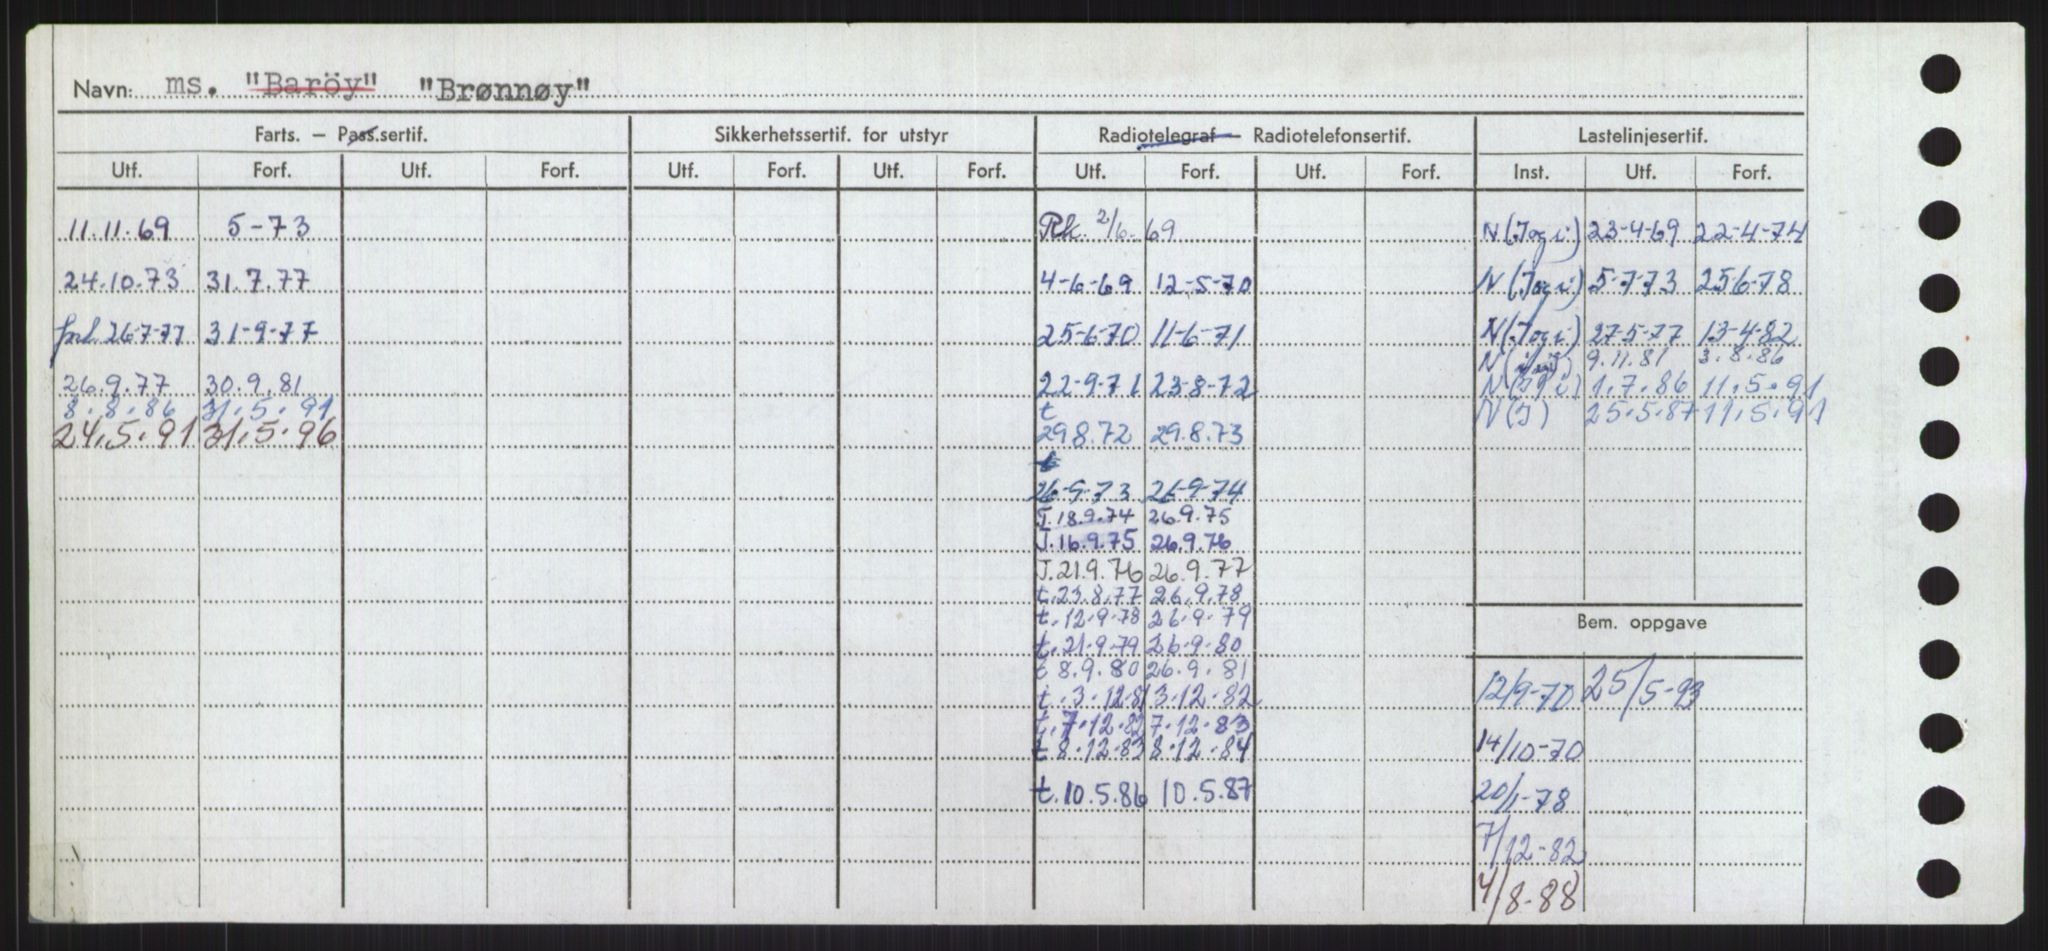 Navn: ms. "Baröy" "Brønnøy"
Farts. — Pass.sertif. Sikkerhetssertif. for utstyr Radiotelegraf — Radiotelefonsertif. Lastelinjesertif.
Utf. Forf. Utf. Forf. Utf. Forf. Utf. Forf. Utf. Forf. Utf. Forf. Inst. Utf. Forf.
11.11.69 5-73 Rk. 2/6-69 N(Jogi) 23-4-69 22-4-74
24.10.73 31.7.77 4-6-69 12-5-70 N(Jogi) 5-7-73 25-6-78
26-7-77 31-9-77 25-6-70 11-6-71 N(Jogi) 27-5-77 13-4-82
N 9.11.81 3.8.86
26.9.77 30.9.81 22-9-71 23-8-72 N(J) 1.7.86 11.5.91
8.8.86 31.5.91 t N(J) 25.5.87 11.5.91
24.5.91 31.5.96 29.8.72 29.8.73
t
26-9-73 26-9-74
J.18.9.74 26.9.75
J.16.9.75 26.9.76
J.21.9.76 26.9.77
t.23.8.77 26.9.78
t.12.9.78 26.9.79
Bem. oppgave
t.21.9.79 26.9.80
t 8.9.80 26.9.81
t.3.12.81 3.12.82 12/9-70 25/5-93
t.7.12.82 7.12.83
t 8.12.83 8.12.84 14/10-70
t.10.5.86 10.5.87 20/1-78
7/12-82
4/8-88